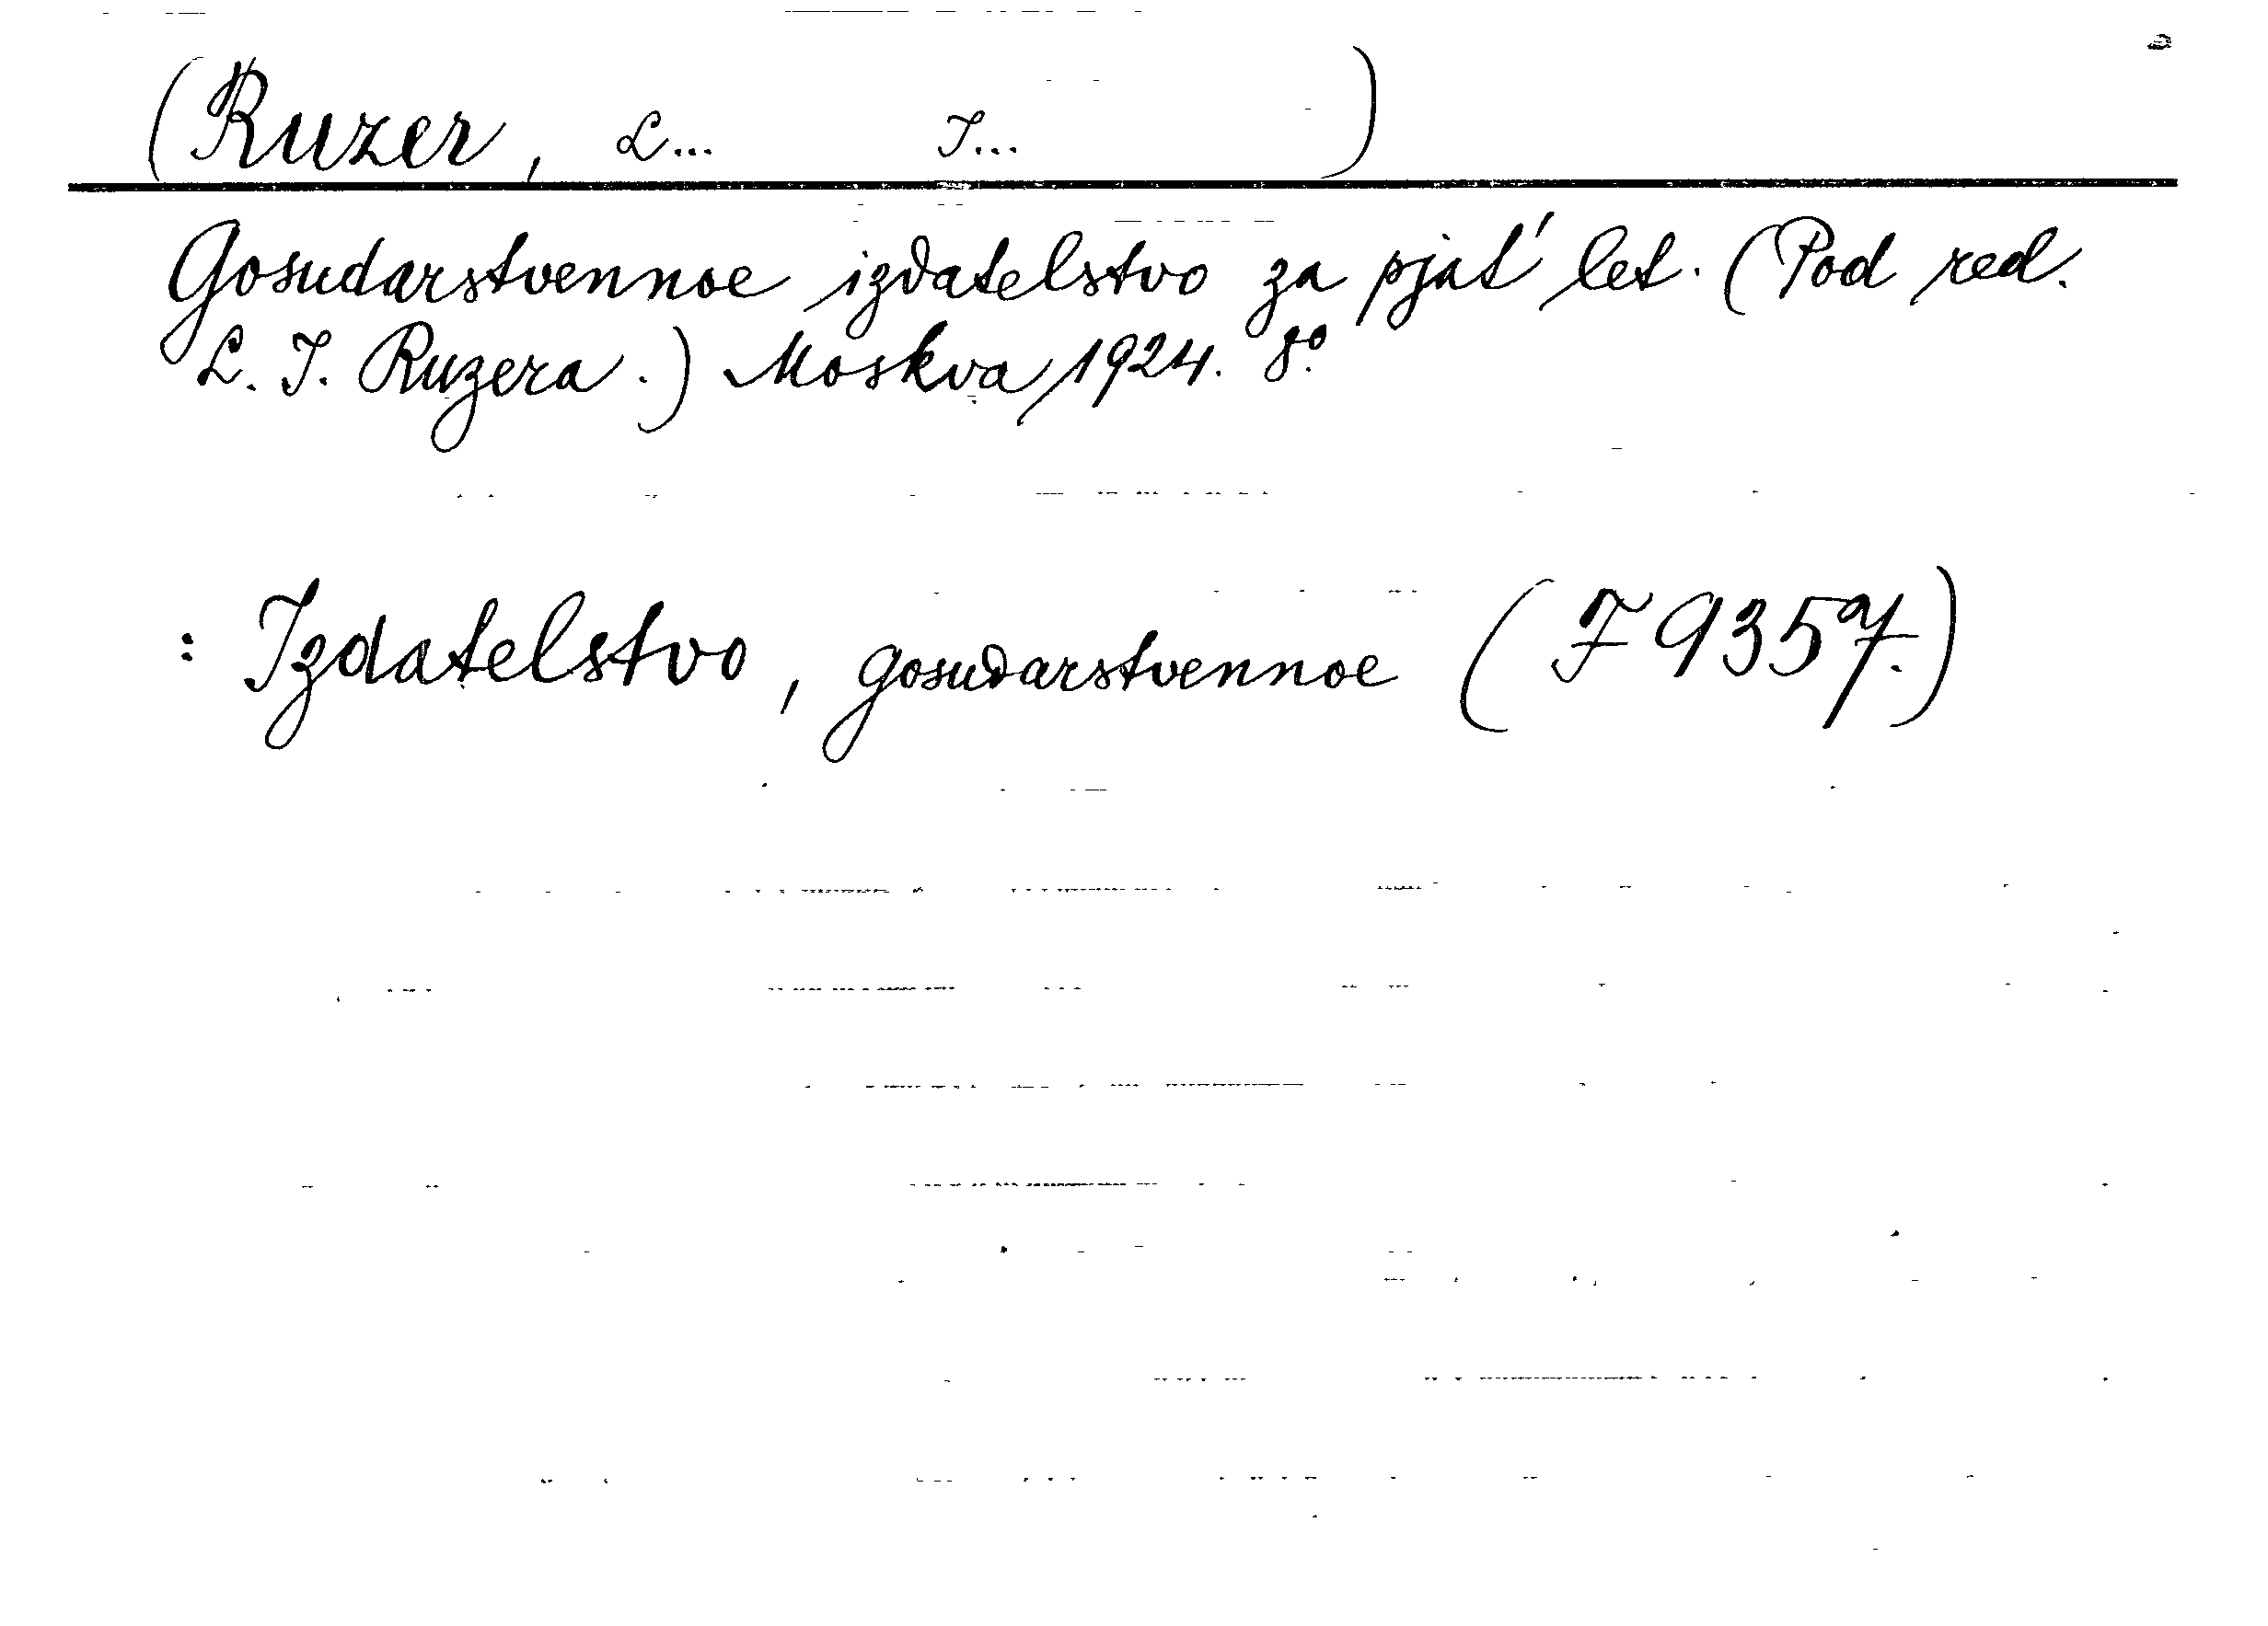 (Ruzer, L... I... )
Gosudarstvennoe izdatelstvo za pjat' let. (Pod red.
L. I. Ruzera.) Moskva, 1924. 8°.
: Izdatelstvo, gosudarstvennoe (F 9357.)